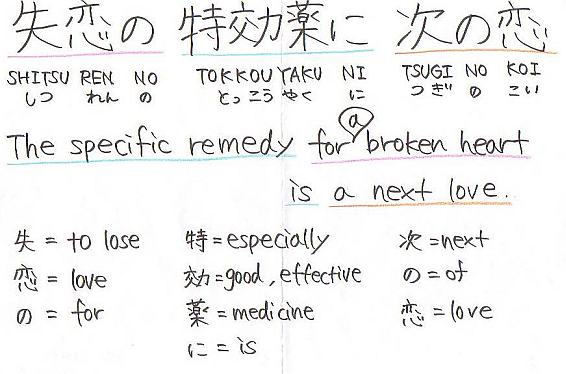 失恋の 特効薬に 次の恋
SHITSU REN NO TOKKOU YAKU NI TSUGI NO KOI
しつ れん の とっ こう やく に つぎ の こい
The specific remedy for a broken heart
is a next love.
失 = to lose 特 = especially 次 = next
恋 = love 効 = good, effective の = of
の = for 薬 = medicine 恋 = love
に = is